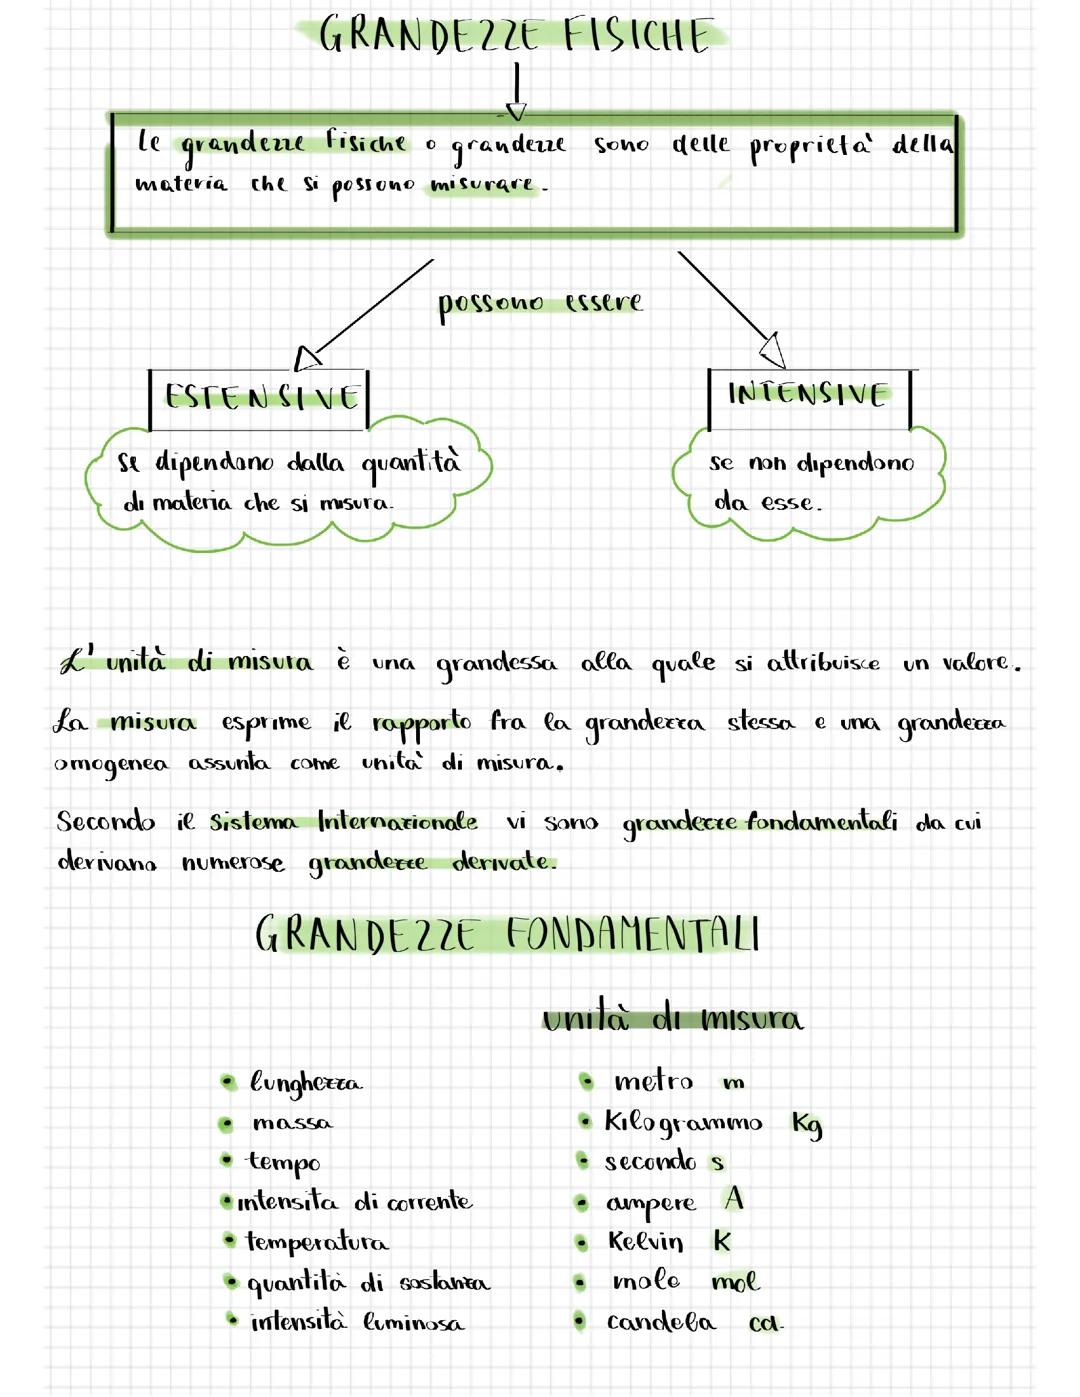 GRANDEZZE FISICHE
le grandezze fisiche o grandezze sono delle proprietà della
materia che si possono misurare.
possono essere
ESTENSIVE
INTENSIVE
se dipendono dalla quantità
di materia che si misura.
se non dipendono
da esse.
L'unità di misura è una grandessa alla quale si attribuisce un valore.
La misura esprime il rapporto fra la grandezza stessa e una grandezza
omogenea assunta come unità di misura.
Secondo il Sistema Internazionale vi sono grandezze fondamentali da cui
derivano numerose grandezze derivate.
GRANDEZZE FONDAMENTALI
unità di misura
• lunghezza • metro m
• massa • Kilogrammo Kg
• tempo • secondo s
• intensita di corrente • ampere A
• temperatura • Kelvin K
• quantità di sostanza • mole mol
• intensità luminosa • candela cd.